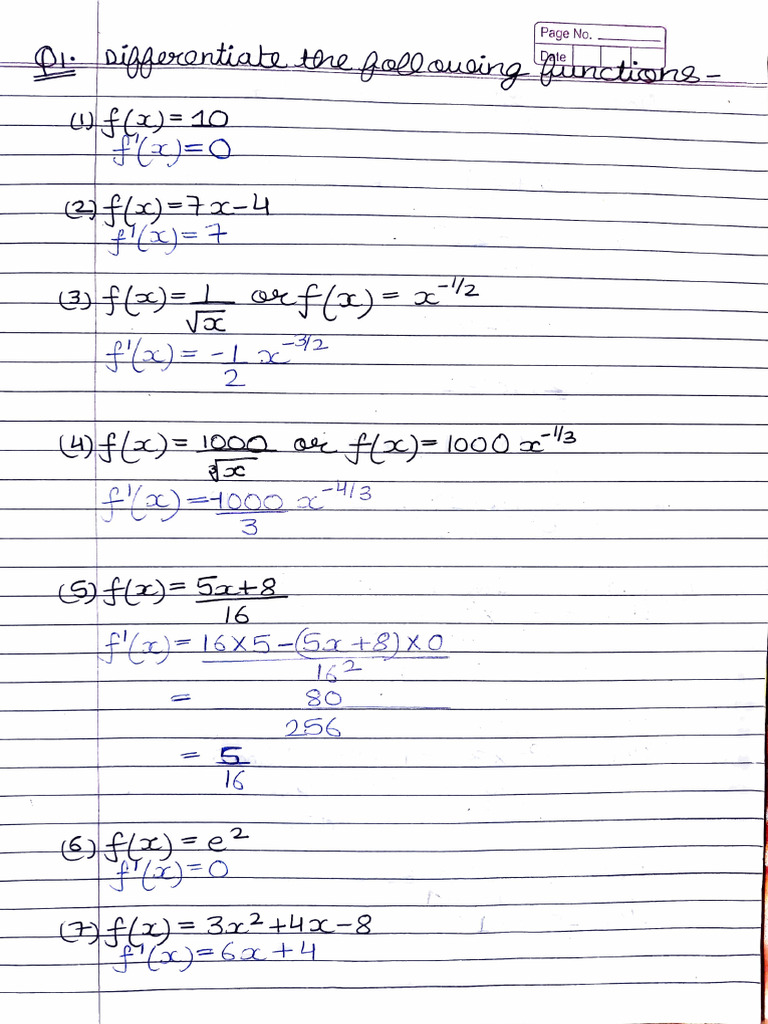 Page No.
Date
Q1. Differentiate the following functions -
(1) f(x) = 10
f'(x) = 0
(2) f(x) = 7x - 4
f'(x) = 7
(3) f(x) = 1/√x or f(x) = x^(-1/2)
f'(x) = -1/2 x^(-3/2)
(4) f(x) = 1000/∛x or f(x) = 1000 x^(-1/3)
f'(x) = -1000/3 x^(-4/3)
(5) f(x) = (5x+8)/16
f'(x) = (16×5 - (5x+8)×0)/16²
= 80/256
= 5/16
(6) f(x) = e²
f'(x) = 0
(7) f(x) = 3x² + 4x - 8
f'(x) = 6x + 4